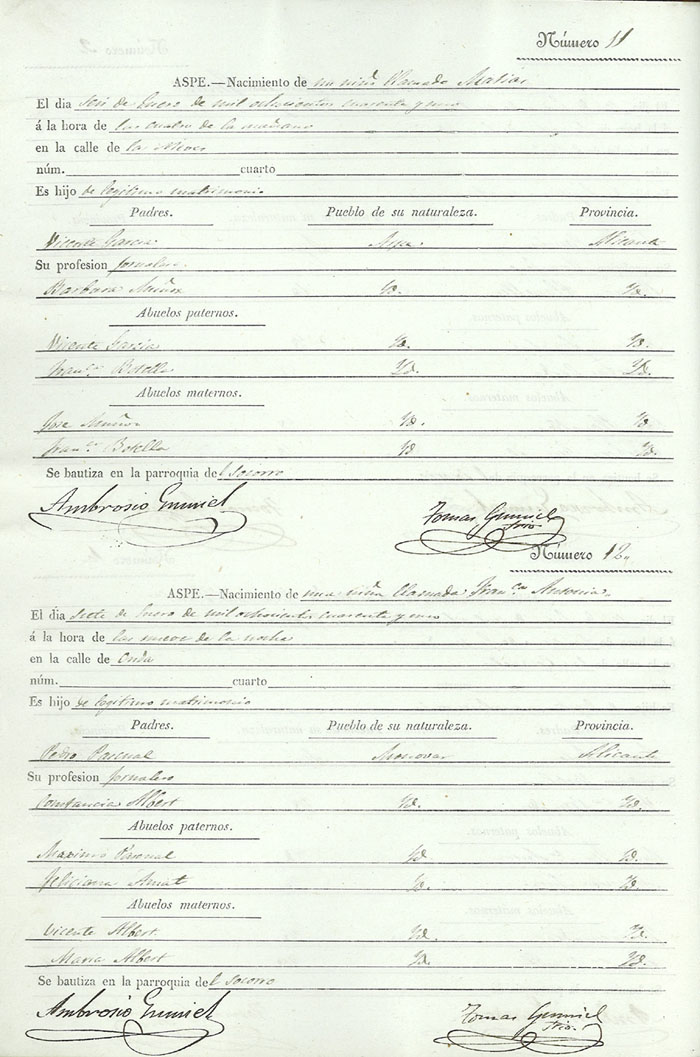 Número 11
ASPE.—Nacimiento de un niño llamado Matias
El dia seis de Enero de mil ochocientos cuarenta y uno
á la hora de las cuatro de la mañana
en la calle de la
núm. cuarto
Es hijo de legitimo matrimonio
Padres. Pueblo de su naturaleza. Provincia.
Vicente Garcia Aspe Alicante
Su profesion jornalero
Barbara Muñoz Yd. Yd.
Abuelos paternos.
Vicente Garcia Yd. Yd.
Fran.ca Botella Yd. Yd.
Abuelos maternos.
Jose Muñoz Yd. Yd.
Fran.ca Botella Yd Yd.
Se bautiza en la parroquia del Socorro
Ambrosio Gumiel Tomas Gumiel
Srio.
Número 12
ASPE.—Nacimiento de una niña llamada Fran.ca Antonia
El dia siete de Enero de mil ochocientos cuarenta y uno
á la hora de las nueve de la noche
en la calle de Onda
núm. cuarto
Es hijo de legitimo matrimonio
Padres. Pueblo de su naturaleza. Provincia.
Pedro Pascual Monovar Alicante
Su profesion jornalero
Constancia Albert Yd. Yd.
Abuelos paternos.
Maximo Pascual Yd Yd.
Feliciana Amat Yd. Yd.
Abuelos maternos.
Vicente Albert Yd. Yd.
Maria Albert Yd. Yd.
Se bautiza en la parroquia del Socorro
Ambrosio Gumiel Tomas Gumiel
Srio.